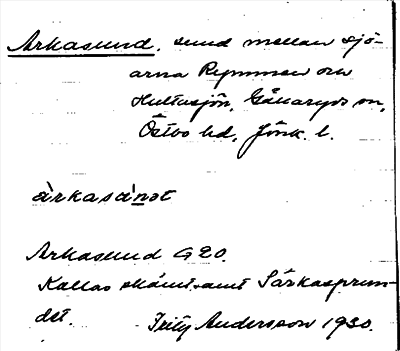 Arkasund, sund mellan sjö-
arna Rymmen och
Hultasjön, Gållaryds sn,
Östbo hd, Jönk. l.
àrkasánət
Arkasund G20.
Kallas skämtsamt Särkasprun-
det. Frity Andersson 1930.